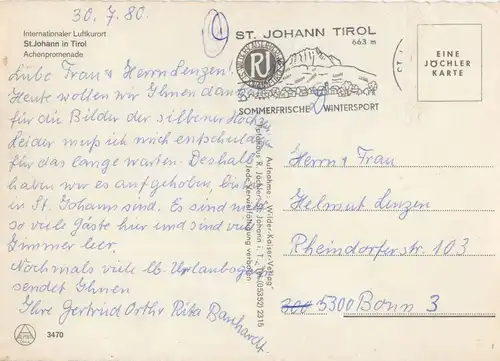 30.7.80.
Internationaler Luftkurort
St. Johann in Tirol
Achenpromenade
Liebe Frau & Herrn Lenzen!
Heute wollen wir Ihnen danken
für die Bilder der silbener Hochzeit.
Leider muß ich mich entschuldigen
für das lange warten. Deshalb
haben wir es aufgehoben, bis wir
in St. Johann sind. Es sind nicht
so viele Gäste hier und sind viele
Zimmer leer.
Nochmals viele lb. Urlaubsgrüße
sendet Ihnen
Ihre Gertrud Orth & Rita
3470
Aufnahme: „Wilder-Kaiser-Verlag"
Fotohaus R. Jöchler, St. Johann i. T., Tel. (05352) 2315
Jede Vervielfältigung verboten
ST. JOHANN TIROL
663 m
RJ
SOMMERFRISCHE WINTERSPORT
EINE
JÖCHLER
KARTE
Herrn & Frau
Helmut Lenzen
Rheindorferstr. 103
5300 Bonn 3